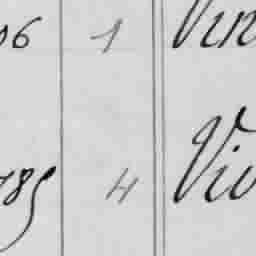 06 1 Vin
785 4 Viv